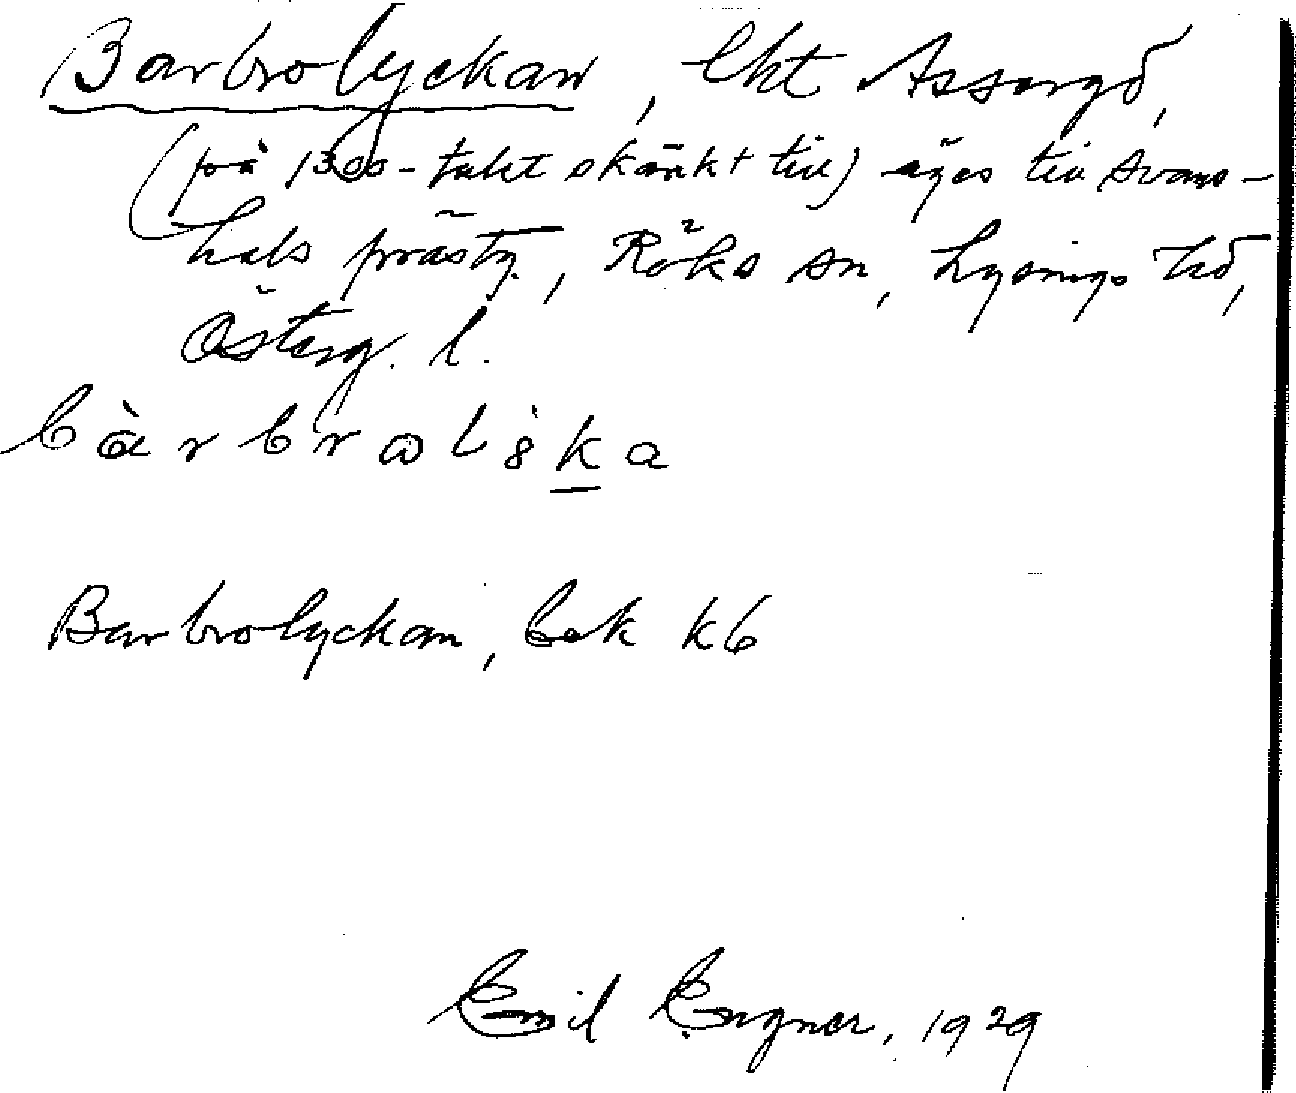 Barbrolyckan, lht Assargd,
(på 1300-talet skänkt till) äges till Svans-
hals prästg., Röks sn, Lysings hd,
Österg. l.
bàrbrωlỳka
Barbrolyckan, bek k6
Emil Engner, 1929